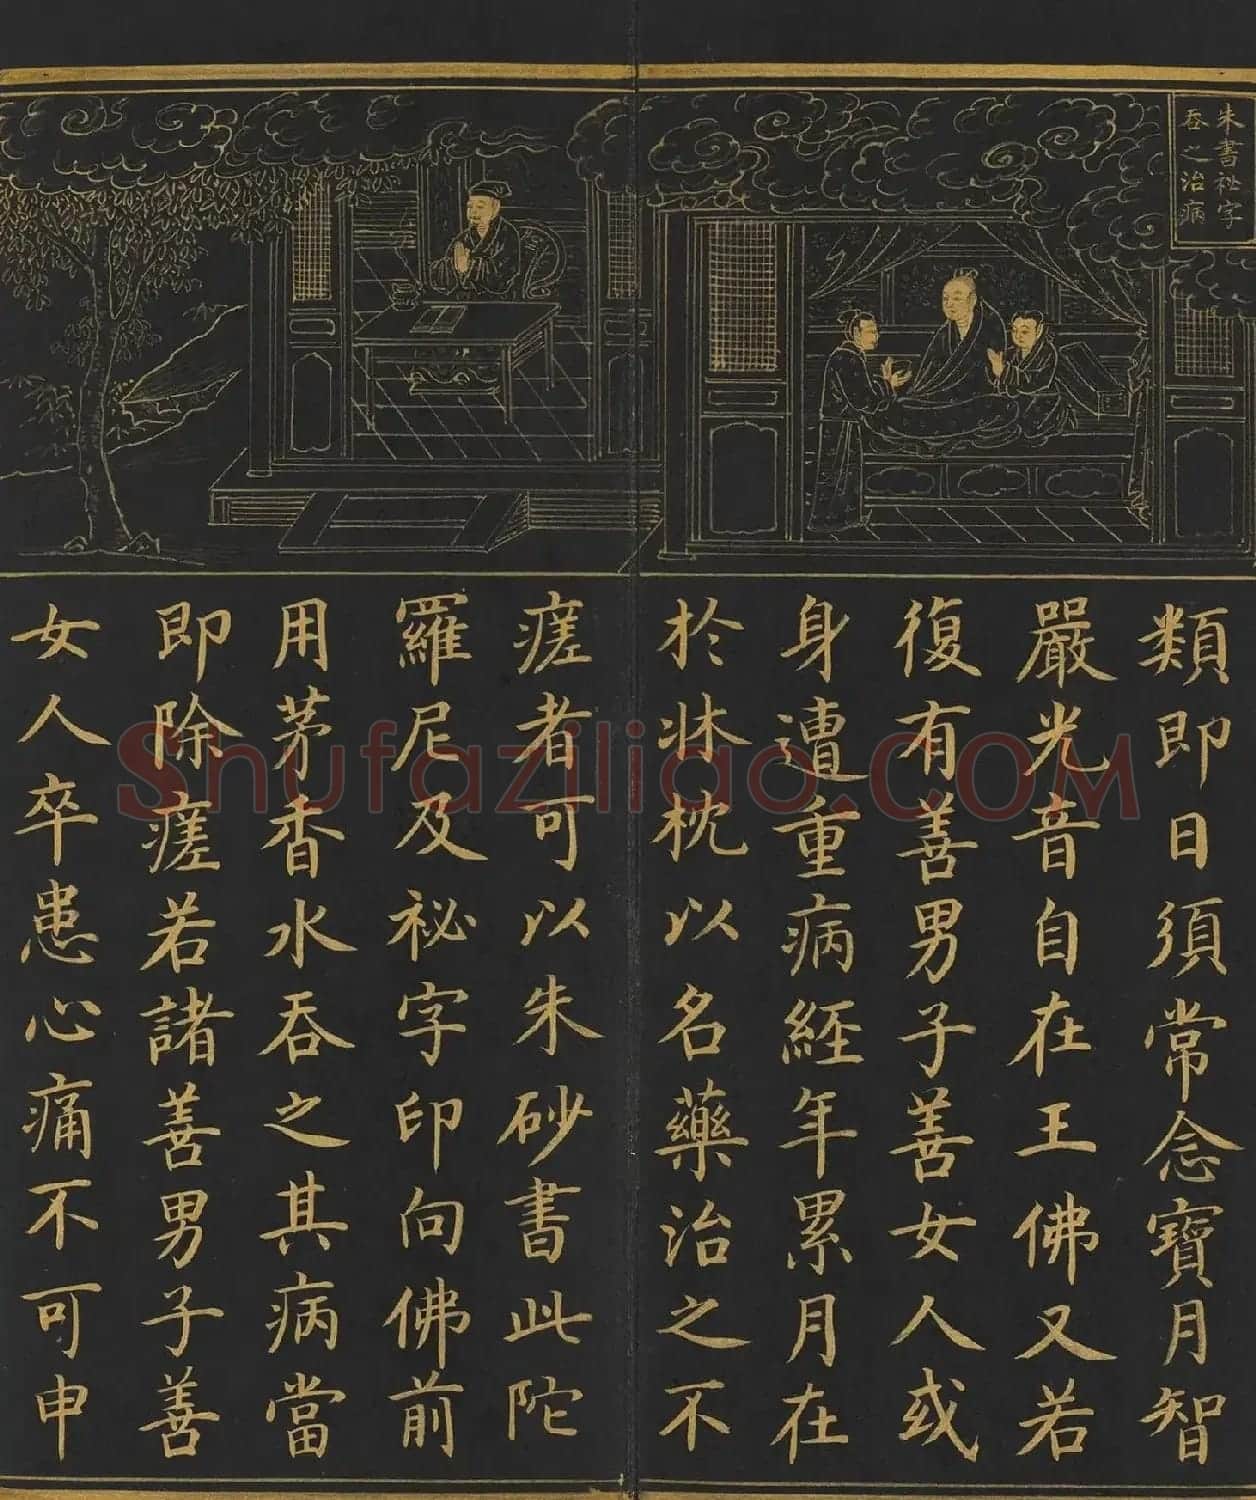 朱書祕字
吞之治病
類即日須常念寶月智
嚴光音自在王佛又若
復有善男子善女人或
身遭重病經年累月在
於牀枕以名藥治之不
瘥者可以朱砂書此陀
羅尼及祕字印向佛前
用茅香水吞之其病當
即除瘥若諸善男子善
女人卒患心痛不可申
Shufaziliao.COM